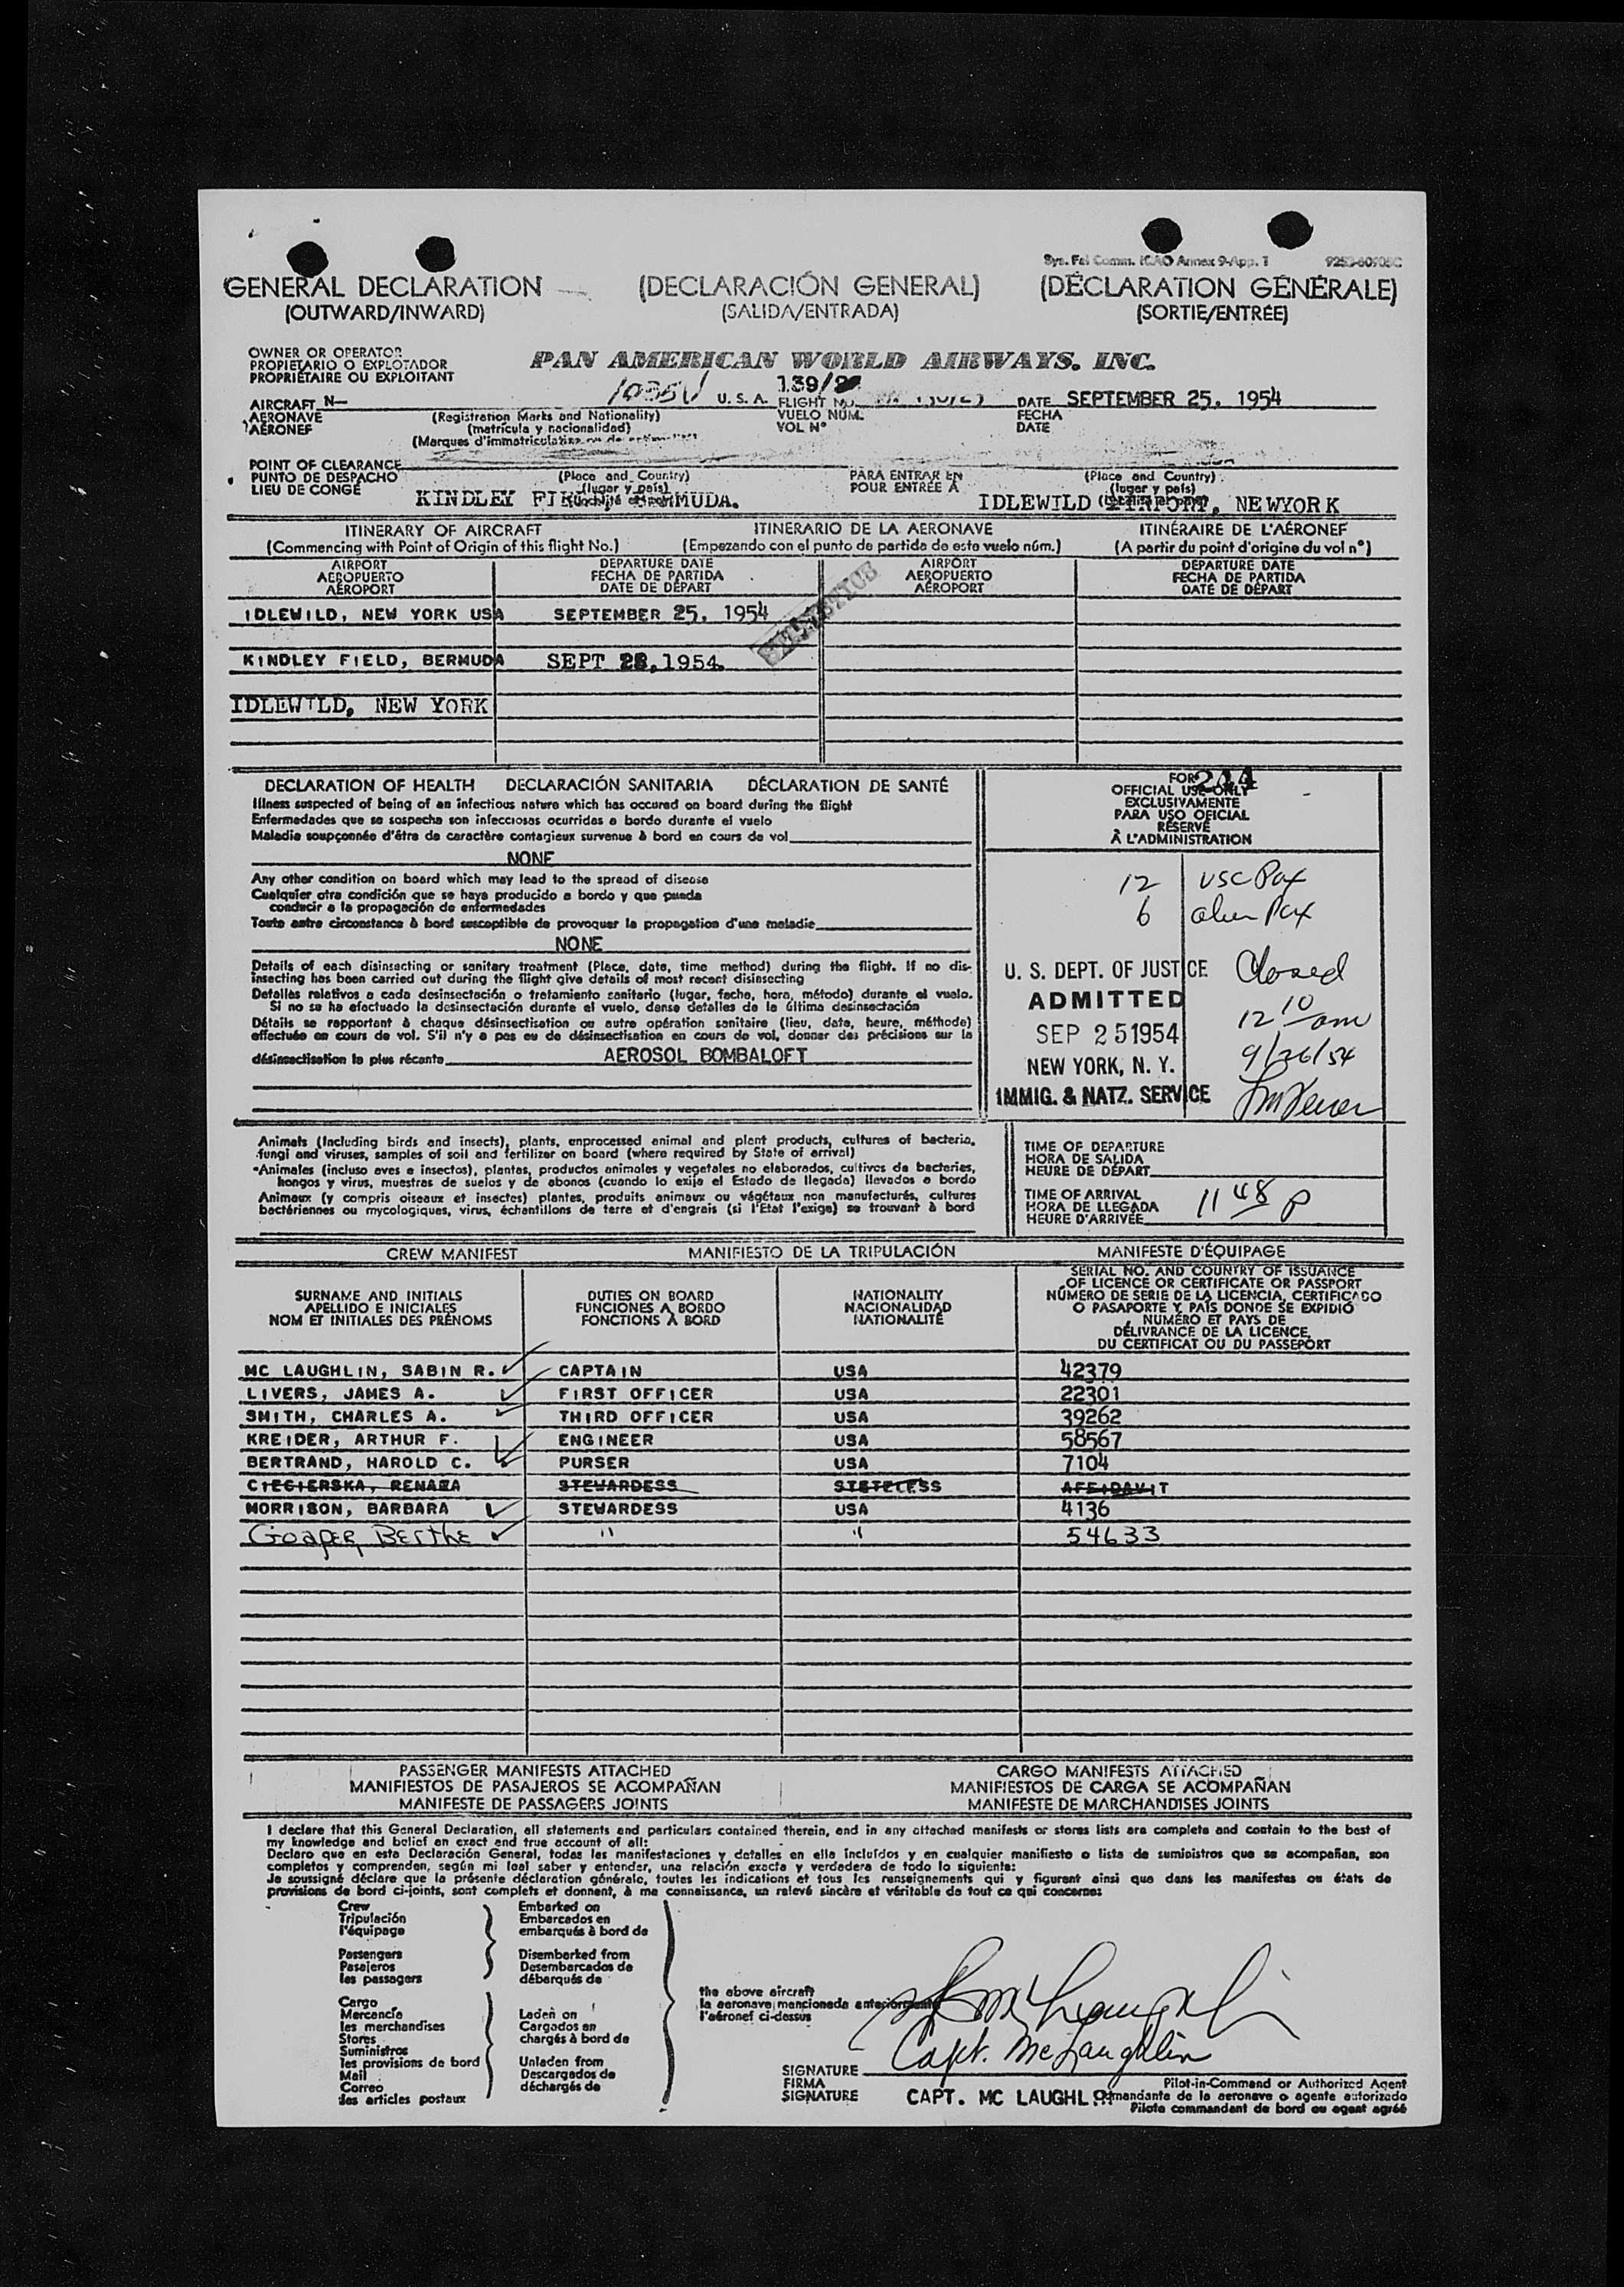 Sys. Fal Comm. ICAO Annex 9-App. 1
GENERAL DECLARATION (DECLARACIÓN GENERAL) (DÉCLARATION GÉNÉRALE)
(OUTWARD/INWARD) (SALIDA/ENTRADA) (SORTIE/ENTRÉE)
OWNER OR OPERATOR
PROPIETARIO O EXPLOTADOR
PROPRIÉTAIRE OU EXPLOITANT
PAN AMERICAN WORLD AIRWAYS. INC.
139/2
AIRCRAFT N— 1035V U. S. A. FLIGHT NO. DATE SEPTEMBER 25. 1954
AERONAVE (Registration Marks and Nationality) VUELO NÚM. FECHA
AÉRONEF (matrícula y nacionalidad) VOL N° DATE
(Marques d'immatriculation
POINT OF CLEARANCE
PUNTO DE DESPACHO (Place and Country) PARA ENTRAR EN (Place and Country)
LIEU DE CONGÉ (lugar y país) POUR ENTRÉE A (lugar y país)
KINDLEY BERMUDA. IDLEWILD AIRPORT, NEWYORK
ITINERARY OF AIRCRAFT ITINERARIO DE LA AERONAVE ITINÉRAIRE DE L'AÉRONEF
(Commencing with Point of Origin of this flight No.) (Empezando con el punto de partida de este vuelo núm.) (A partir du point d'origine du vol n°)
AIRPORT DEPARTURE DATE AIRPORT DEPARTURE DATE
AEROPUERTO FECHA DE PARTIDA AEROPUERTO FECHA DE PARTIDA
AÉROPORT DATE DE DÉPART AÉROPORT DATE DE DÉPART
IDLEWILD, NEW YORK USA SEPTEMBER 25, 1954
KINDLEY FIELD, BERMUDA SEPT 1954.
IDLEWILD, NEW YORK
DECLARATION OF HEALTH DECLARACIÓN SANITARIA DÉCLARATION DE SANTÉ
Illness suspected of being of an infectious nature which has occured on board during the flight
Enfermedades que se sospecha son infecciosas ocurridas a bordo durante el vuelo
Maladie soupçonnée d'être de caractère contagieux survenue à bord en cours de vol
NONE
Any other condition on board which may lead to the spread of disease
Cualquier otra condición que se haya producido a bordo y que pueda
conducir a la propagación de enfermedades
Toute autre circonstance à bord susceptible de provoquer la propagation d'une maladie
NONE
Details of each disinsecting or sanitary treatment (Place, date, time method) during the flight. If no dis-
insecting has been carried out during the flight give details of most recent disinsecting
Detalles relativos a cada desinsectación o tratamiento sanitario (lugar, fecha, hora, método) durante el vuelo.
Si no se ha efectuado la desinsectación durante el vuelo, danse detalles de la última desinsectación
Détails se rapportant à chaque désinsectisation ou autre opération sanitaire (lieu, date, heure, méthode)
effectuée en cours de vol. S'il n'y a pas eu de désinsectisation en cours de vol, donner des précisions sur la
désinsectisation la plus récente AEROSOL BOMBALOFT
FOR 244
OFFICIAL USE ONLY
EXCLUSIVAMENTE
PARA USO OFICIAL
RÉSERVÉ
À L'ADMINISTRATION
12 USC Pax
6 alien Pax
U. S. DEPT. OF JUSTICE
ADMITTED
SEP 25 1954
NEW YORK, N. Y.
IMMIG. & NATZ. SERVICE
Closed
12 10 am
9/26/54
Animals (Including birds and insects), plants, unprocessed animal and plant products, cultures of bacteria,
fungi and viruses, samples of soil and fertilizer on board (where required by State of arrival)
Animales (incluso aves e insectos), plantas, productos animales y vegetales no elaborados, cultivos de bacterias,
hongos y virus, muestras de suelos y de abonos (cuando lo exija el Estado de llegada) llevados a bordo
Animaux (y compris oiseaux et insectes) plantes, produits animaux ou végétaux non manufacturés, cultures
bactériennes ou mycologiques, virus, échantillons de terre et d'engrais (si l'Etat l'exige) se trouvant à bord
TIME OF DEPARTURE
HORA DE SALIDA
HEURE DE DÉPART
TIME OF ARRIVAL
HORA DE LLEGADA
HEURE D'ARRIVÉE
11 48 P
CREW MANIFEST MANIFIESTO DE LA TRIPULACIÓN MANIFESTE D'ÉQUIPAGE
SURNAME AND INITIALS
APELLIDO E INICIALES
NOM ET INITIALES DES PRÉNOMS
DUTIES ON BOARD
FUNCIONES A BORDO
FONCTIONS À BORD
NATIONALITY
NACIONALIDAD
NATIONALITÉ
SERIAL NO. AND COUNTRY OF ISSUANCE
OF LICENCE OR CERTIFICATE OR PASSPORT
NÚMERO DE SERIE DE LA LICENCIA, CERTIFICADO
O PASAPORTE Y PAÍS DONDE SE EXPIDIÓ
NUMÉRO ET PAYS DE
DÉLIVRANCE DE LA LICENCE,
DU CERTIFICAT OU DU PASSEPORT
MC LAUGHLIN, SABIN R. CAPTAIN USA 42379
LIVERS, JAMES A. FIRST OFFICER USA 22301
SMITH, CHARLES A. THIRD OFFICER USA 39262
KREIDER, ARTHUR F. ENGINEER USA 58567
BERTRAND, HAROLD C. PURSER USA 7104
CIEGIERSKA, RENAZA STEWARDESS STETELESS AFFIDAVIT
MORRISON, BARBARA STEWARDESS USA 4136
Goaper, Berthe " " 54633
PASSENGER MANIFESTS ATTACHED CARGO MANIFESTS ATTACHED
MANIFIESTOS DE PASAJEROS SE ACOMPAÑAN MANIFIESTOS DE CARGA SE ACOMPAÑAN
MANIFESTE DE PASSAGERS JOINTS MANIFESTE DE MARCHANDISES JOINTS
I declare that this General Declaration, all statements and particulars contained therein, and in any attached manifests or stores lists are complete and contain to the best of
my knowledge and belief an exact and true account of all:
Declaro que en esta Declaración General, todas las manifestaciones y detalles en ella incluídos y en cualquier manifiesto o lista de suministros que se acompañan, son
completos y comprenden, según mi leal saber y entender, una relación exacta y verdadera de todo lo siguiente:
Je soussigné déclare que la présente déclaration générale, toutes les indications et tous les renseignements qui y figurent ainsi que dans les manifestes ou états de
provisions de bord ci-joints, sont complets et donnent, à ma connaissance, un relevé sincère et véritable de tout ce qui concerne:
Crew
Tripulación
l'équipage
Passengers
Pasajeros
les passagers
Cargo
Mercancía
les merchandises
Stores
Suministros
les provisions de bord
Mail
Correo
des articles postaux
Embarked on
Embarcados en
embarqués à bord de
Disembarked from
Desembarcados de
débarqués de
Laden on
Cargados en
chargés à bord de
Unladen from
Descargados de
déchargés de
the above aircraft
la aeronave mencionada anteriormente
l'aéronef ci-dessus
Capt. McLaughlin
SIGNATURE
FIRMA
SIGNATURE
CAPT. MC LAUGHL
Pilot-in-Command or Authorized Agent
Comandante de la aeronave o agente autorizado
Pilote commandant de bord ou agent agréé